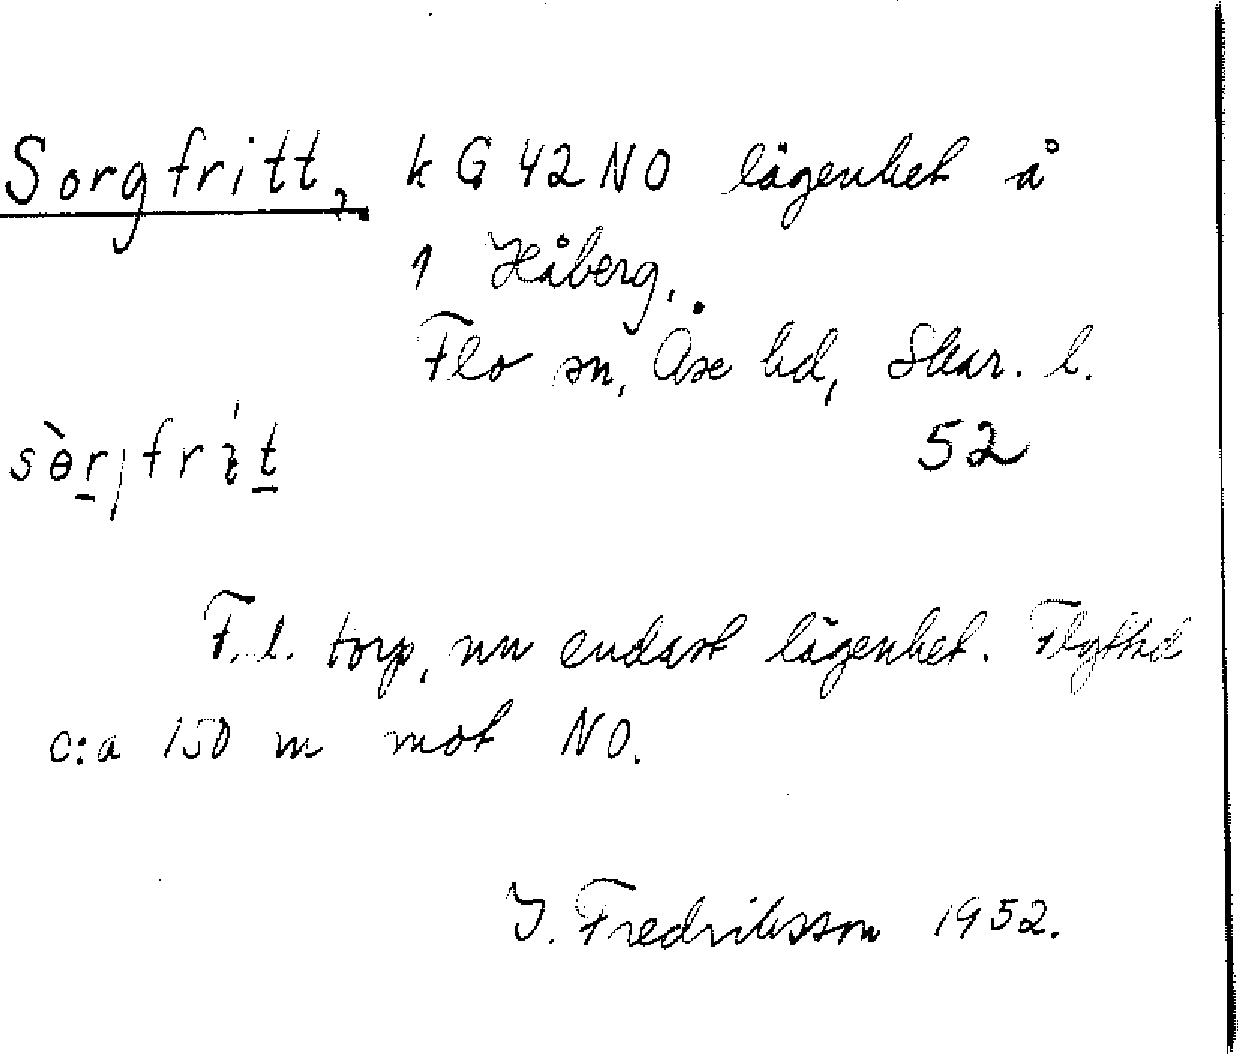 Sorgfritt, k G 42 NO lägenhet å
1 Håberg,
Flo sn, Åse hd, Skar. l.
52
F.l. torp, nu endast lägenhet. Flyttad
c:a 150 m mot NO.
I. Fredriksson 1952.